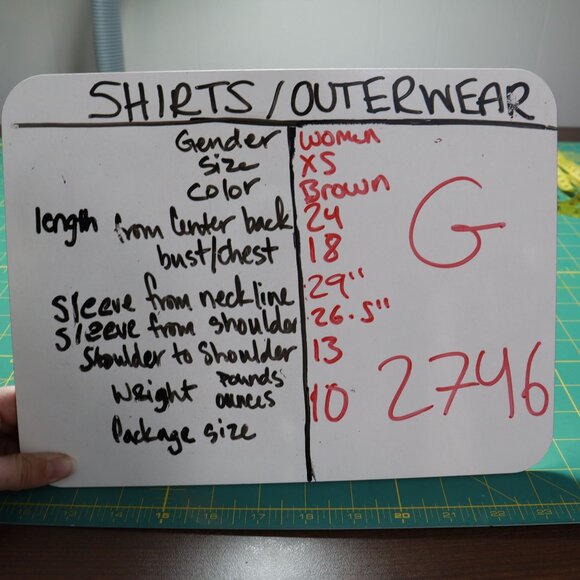 SHIRTS/OUTERWEAR
Gender women
size XS
color Brown
length from Center back 24
bust/chest 18
Sleeve from neckline 29"
Sleeve from shoulder 26.5"
Shoulder to Shoulder 13
Weight pounds
ounces 10
Package size
G
2746
15 16 17 18 19 20 21 22 23